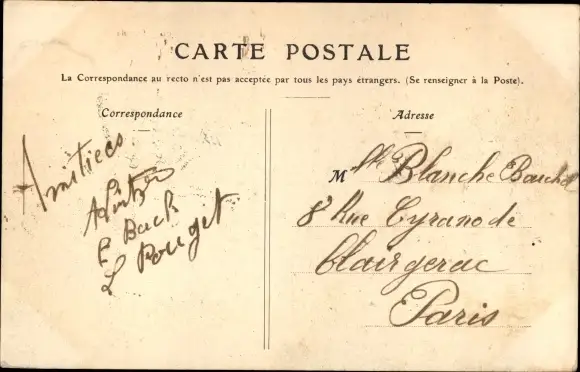 CARTE POSTALE
La Correspondance au recto n'est pas acceptée par tous les pays étrangers. (Se renseigner à la Poste).
Correspondance
Amitiees
E Back
L Pouget
Adresse
Mlle Blanche
8 Rue Cyrano de
Clairgerac
Paris